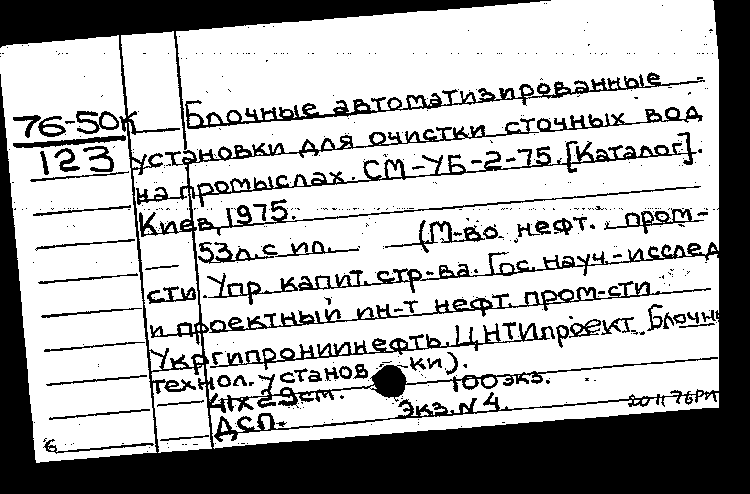 76-50к
123
Блочные автоматизированные
установки для очистки сточных вод
на промыслах. СМ-УБ-2-75. [Каталог].
Киев, 1975.
53л. с ил. (М-во нефт. пром-
сти. Упр. капит. стр-ва. Гос. науч.-исслед
и проектный ин-т нефт. пром-сти.
Укргипрониинефть. ЦНТИпроект. Блочн
технол. установ ки).
41х29см. 100 экз.
ДСП. Экз. N 4.
6